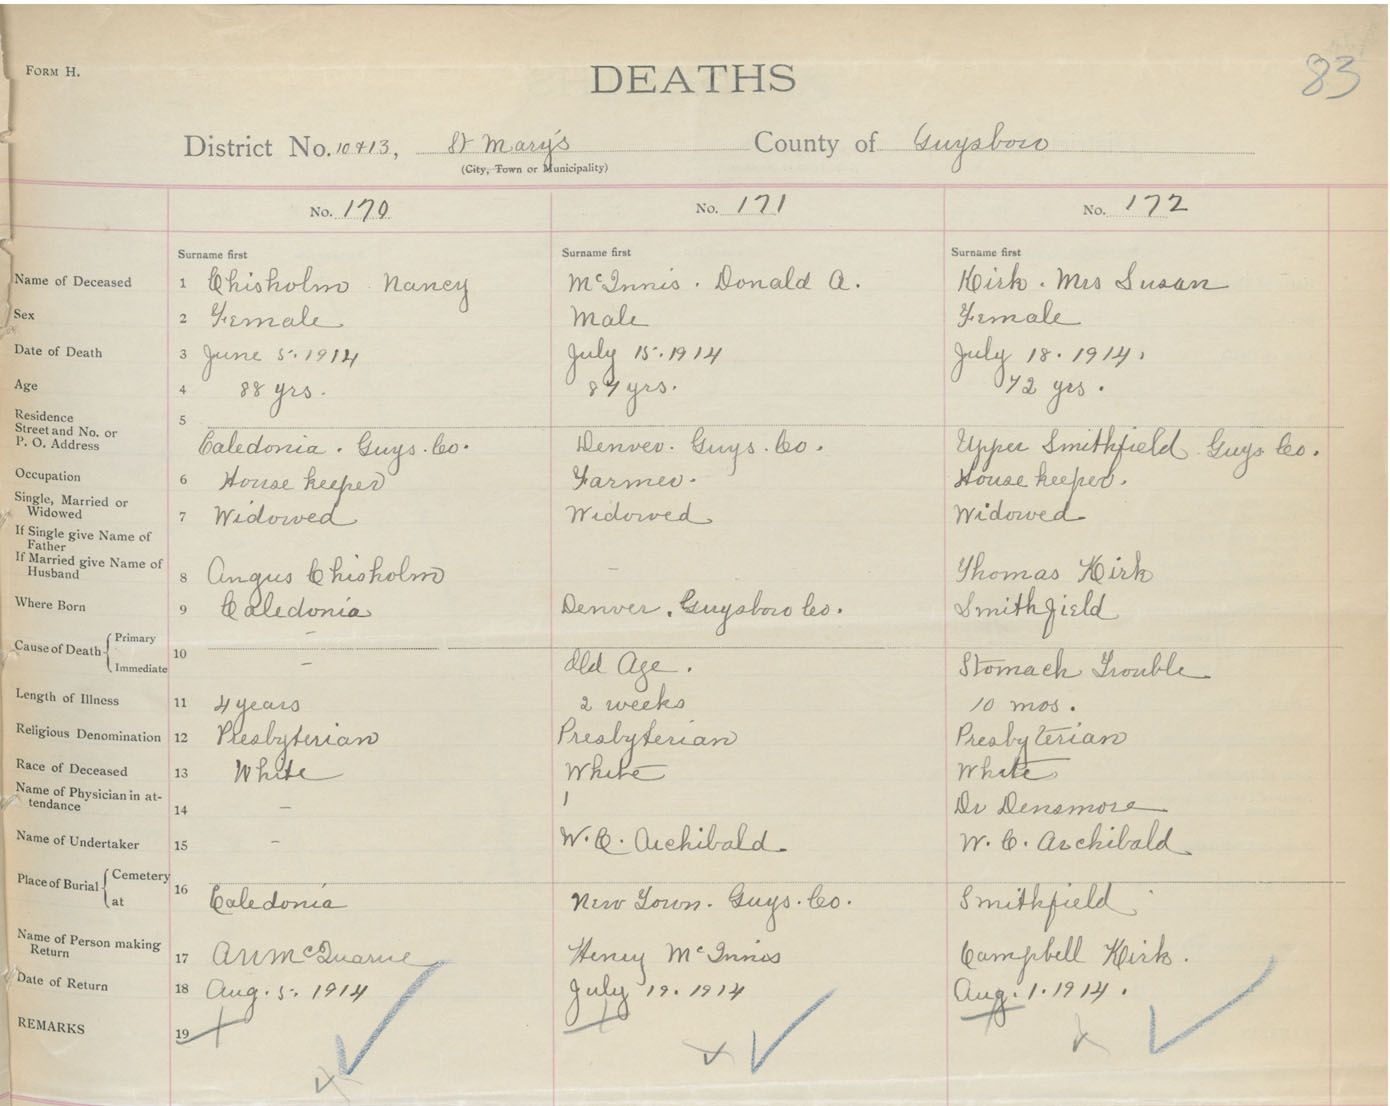 FORM H.
DEATHS
83
District No. 10 & 13, St Mary's County of Guysboro
(City, Town or Municipality)
No. 170 No. 171 No. 172
Surname first Surname first Surname first
Name of Deceased 1 Chisholm Nancy McInnis. Donald A. Kirk. Mrs Susan
Sex 2 Female Male Female
Date of Death 3 June 5. 1914 July 15. 1914 July 18. 1914.
Age 4 88 yrs. 87 yrs. 72 yrs.
Residence 5
Street and No. or
P. O. Address Caledonia. Guys. Co. Denver. Guys. Co. Upper Smithfield Guys Co.
Occupation 6 House keeper Farmer. House keeper.
Single, Married or
Widowed 7 Widowed Widowed Widowed
If Single give Name of
Father
If Married give Name of
Husband 8 Angus Chisholm – Thomas Kirk
Where Born 9 Caledonia Denver, Guysboro Co. Smithfield
Cause of Death { Primary –
10
Immediate – Old Age. Stomach Trouble
Length of Illness 11 4 years 2 weeks 10 mos.
Religious Denomination 12 Presbyterian Presbyterian Presbyterian
Race of Deceased 13 White White White
Name of Physician in at-
tendance 14 – Dr Densmore
Name of Undertaker 15 – W. C. Archibald. W. C. Archibald
Place of Burial { Cemetery
16
at Caledonia New Town. Guys. Co. Smithfield
Name of Person making
Return 17 McQuarrie Henry McInnis Campbell Kirk.
Date of Return 18 Aug. 5. 1914 July 19. 1914 Aug. 1. 1914.
REMARKS 19